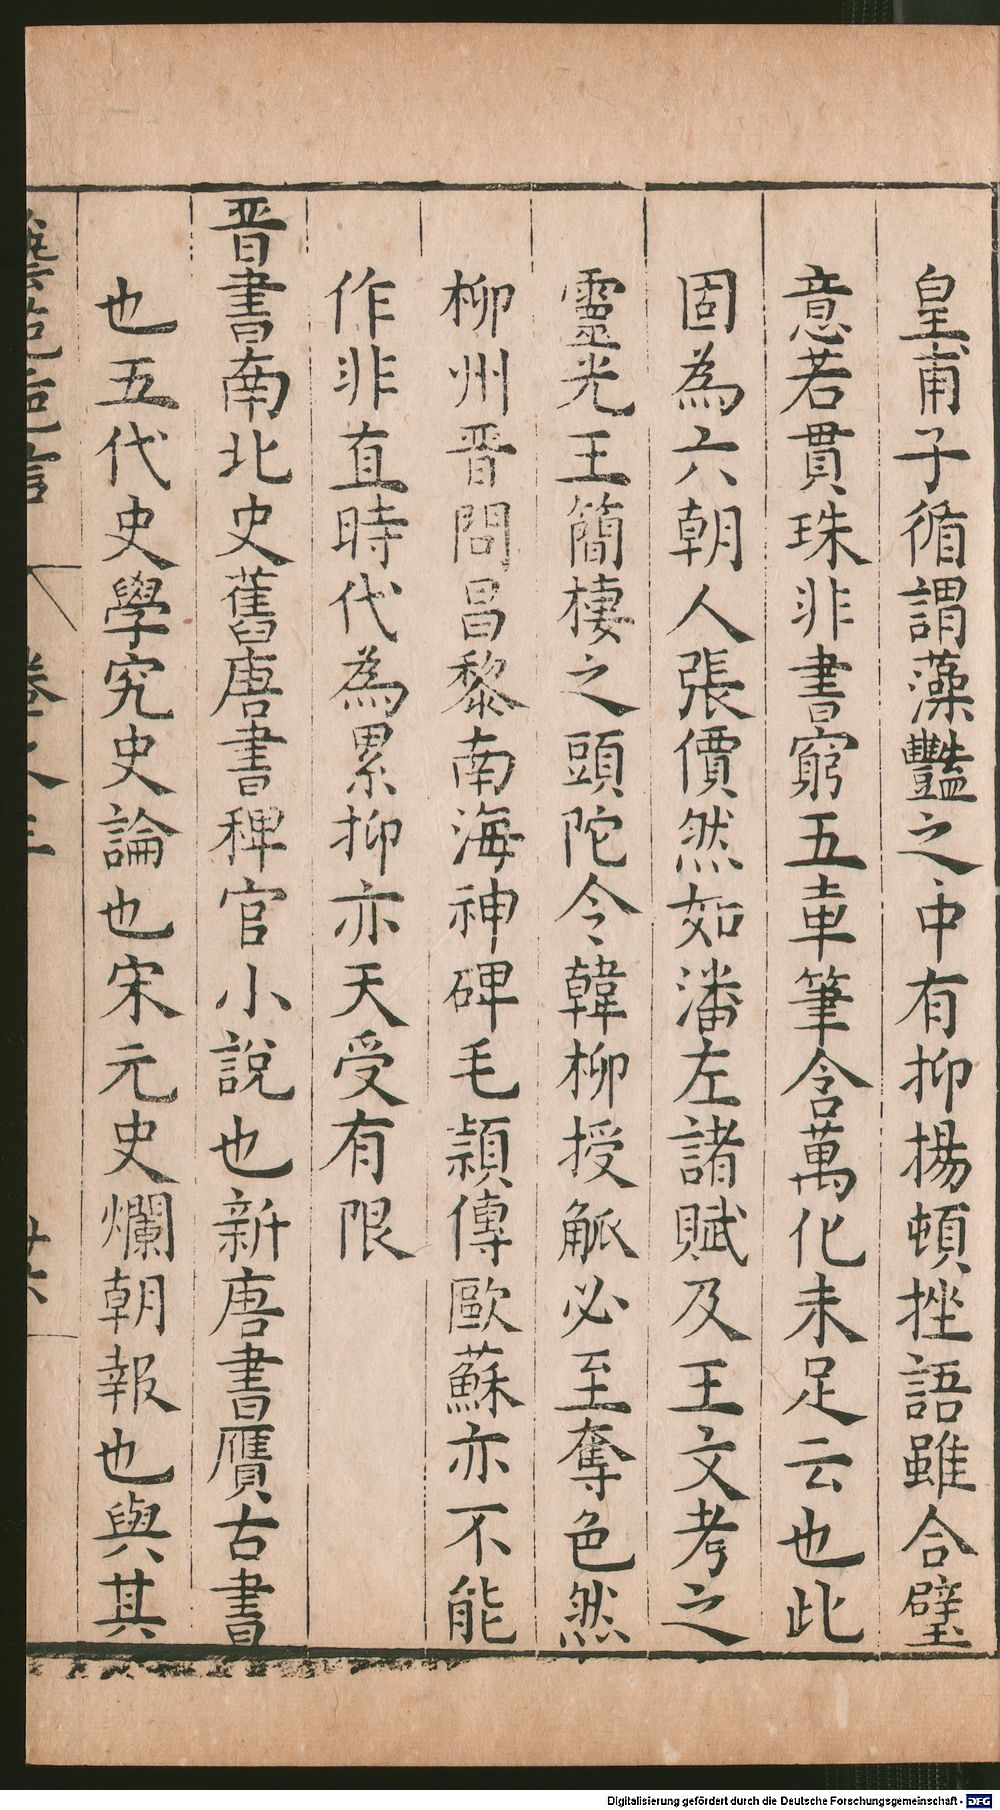 皇甫子循謂藻豔之中有抑揚頓挫語雖合璧
意若貫珠非書窮五車筆含萬化未足云也此
固為六朝人張價然如潘左諸賦及王文考之
靈光王簡棲之頭陀令韓柳授觚必至奪色然
柳州晉問昌黎南海神碑毛頴傳歐蘇亦不能
作非直時代為累抑亦天受有限
晉書南北史舊唐書稗官小說也新唐書贗古書
也五代史學究史論也宋元史爛朝報也與其
藝苑卮言
卷之三
廿六
Digitalisierung gefördert durch die Deutsche Forschungsgemeinschaft - DFG